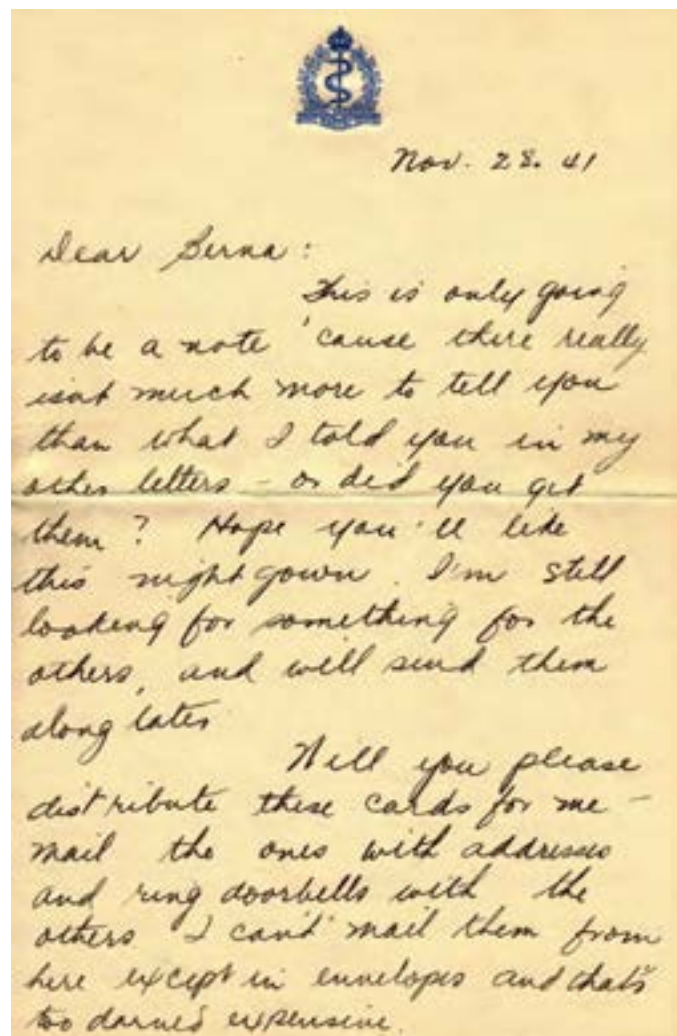 Nov. 28. 41
Dear Berna:
This is only going
to be a note 'cause there really
isnt much more to tell you
than what I told you in my
other letters - or did you get
them? Hope you'll like
this nightgown. I'm still
looking for something for the
others, and will send them
along later.
Will you please
distribute these cards for me -
mail the ones with addresses
and ring doorbells with the
others I can't mail them from
here except in envelopes and that's
too darned expensive.